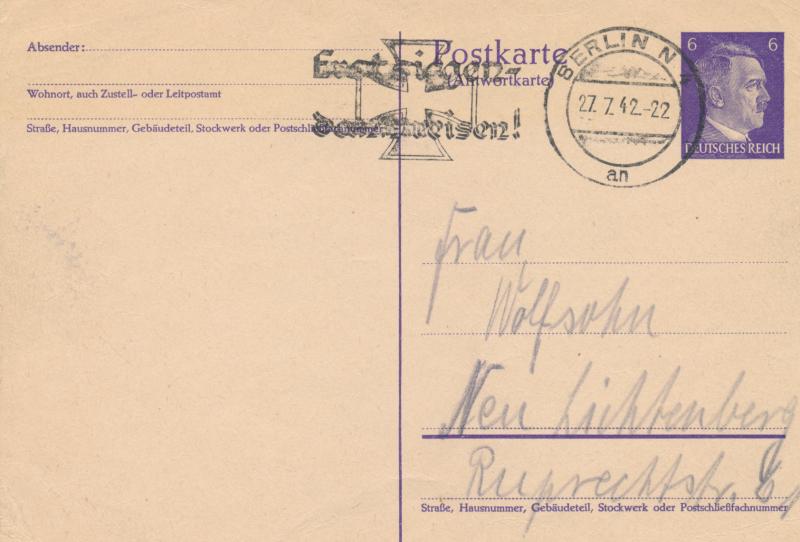 Absender:
Wohnort, auch Zustell- oder Leitpostamt
Straße, Hausnummer, Gebäudeteil, Stockwerk oder Postschließfachnummer
Postkarte
(Antwortkarte)
Erst siegen-
dann reisen!
BERLIN N 4
27.7.42.-22
an
6 6
DEUTSCHES REICH
Frau
Wolfsohn
Neu Lichtenberg
Ruprechtstr.
Straße, Hausnummer, Gebäudeteil, Stockwerk oder Postschließfachnummer